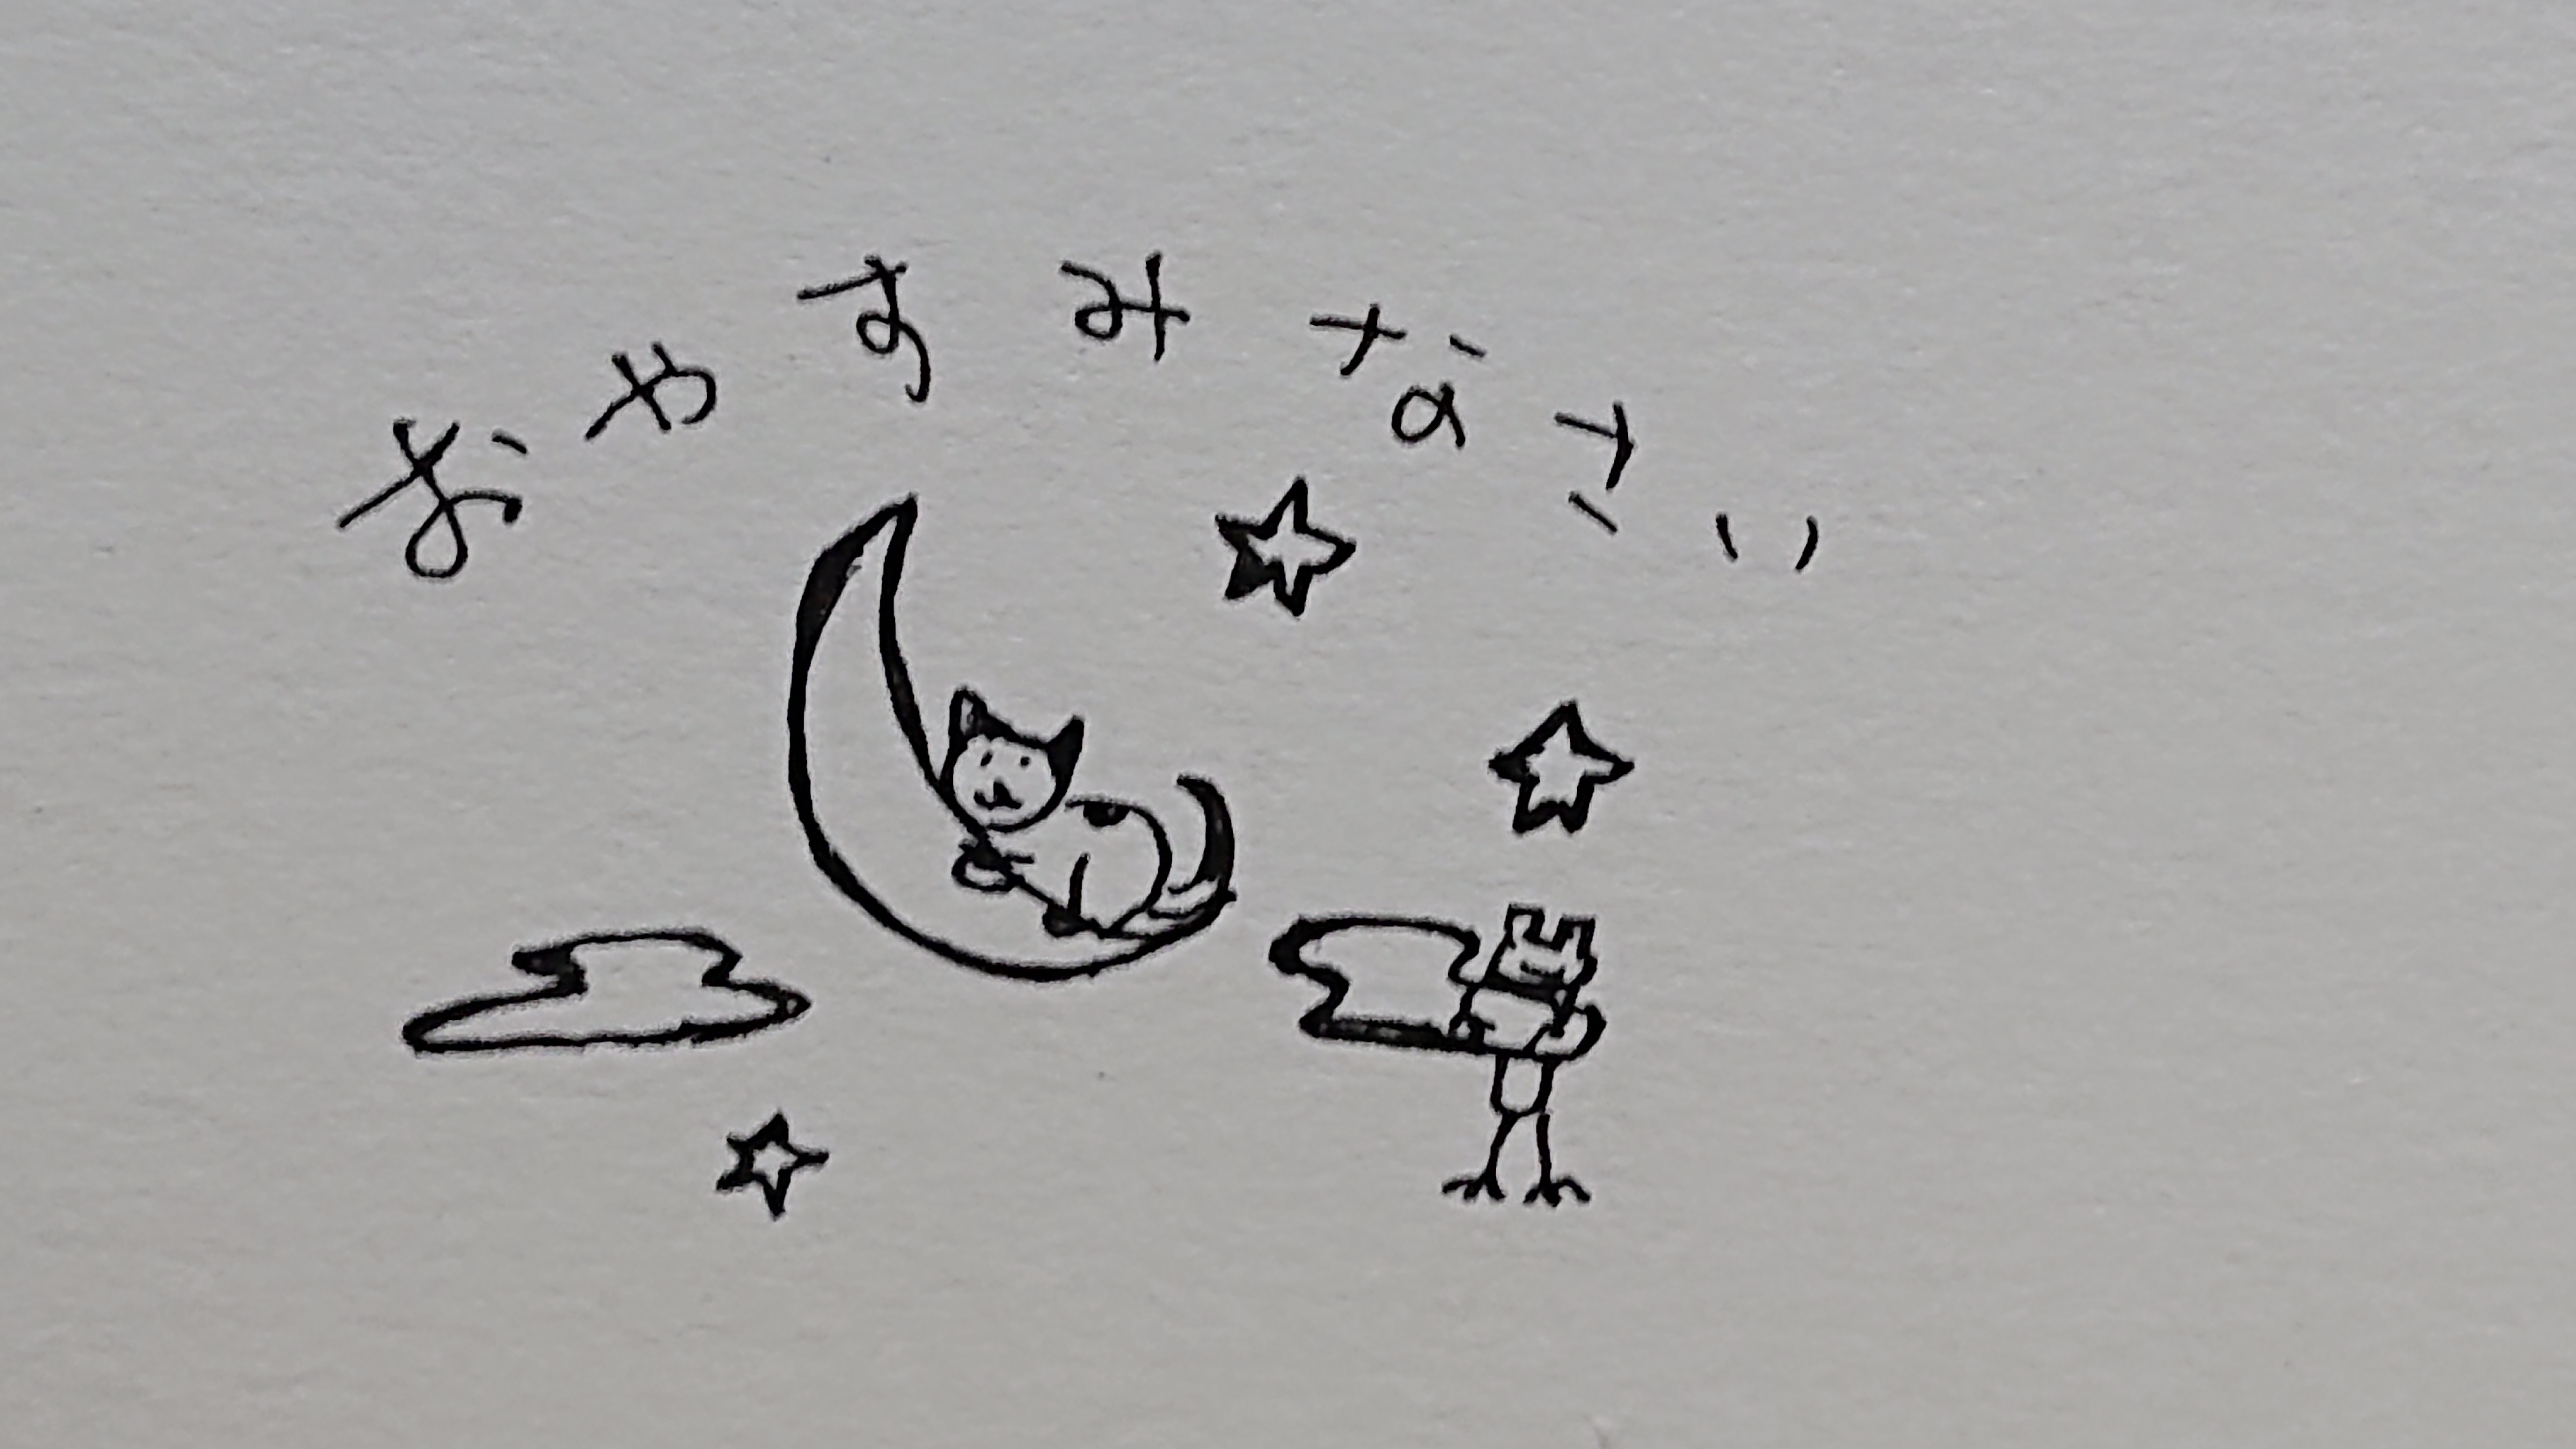 おやすみなさい